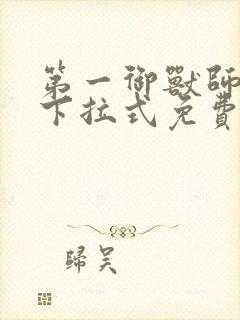 第一御獸師
下拉式免費
歸吴